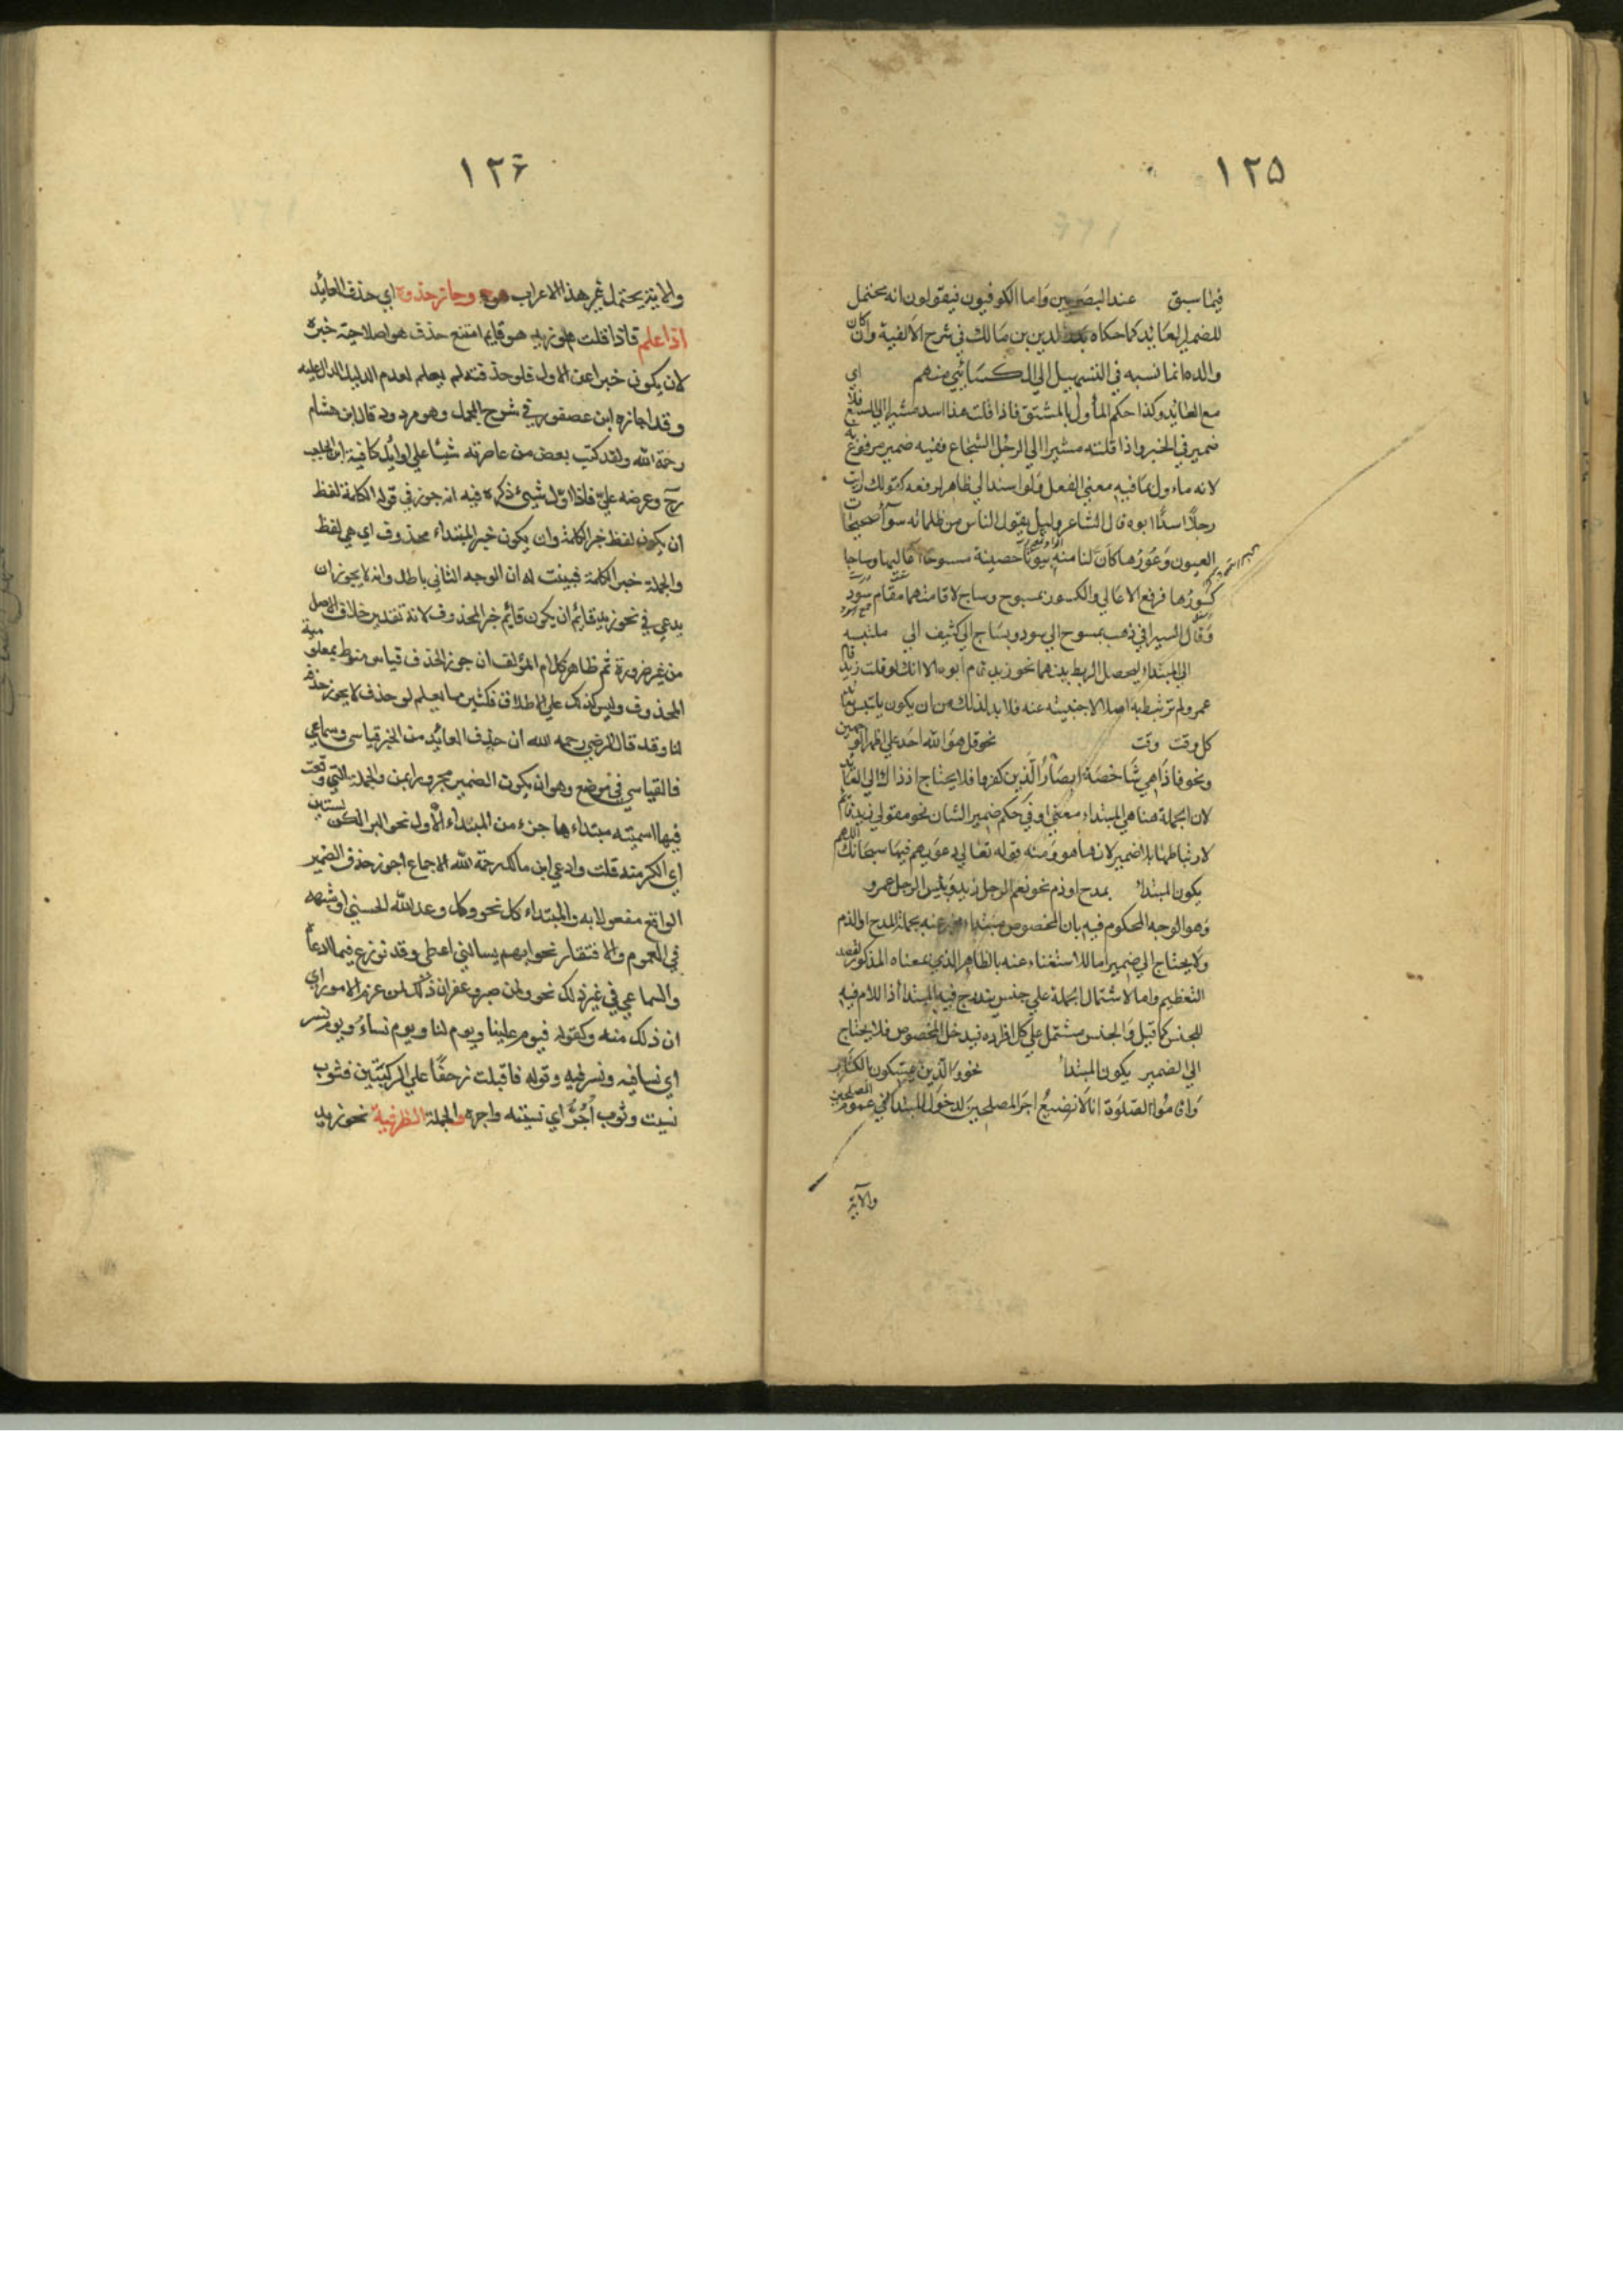 ١٢٥
فيما سبق عند البصريين واما الكوفيون فيقولون انه يحتمل
للضمير العائد كما حكاه بدر الدين بن مالك في شرح الالفية وان كان
والده انما نسبه في التسهيل الي الكسائي منهم اي
مع العائد وكذا حكم المأول بالمشتق فاذا قلت هذا اسد مشيرا الي السبع فلا
ضمير في الخبر واذا قلته مشيرا الي الرجل الشجاع ففيه ضمير مرفوع به
لانه ماءول بما فيه معني الفعل ولو اسند الي ظاهر لرفعه كقولك رايت
رجلا اسدا ابوه قال الشاعر وليل يقول الناس من ظلماته سوآ صحيحات
العيون وعورها كان لنا منه بيوتا حصينة مسوحا اعاليها وساجا
كسورها فرفع الاعالي والكسور بمسوح وساج لاقامتهما مقام سود
وقال السيرافي ذهب بمسوح الي سود وبساج الي كثيف الي ملتبسه
الي المبتداء ليحصل الربط بينهما نحو زيد قام ابوه الا انك لو قلت زيد قام
عمرو لم ترتبط به اصلا لاجنبيته عنه فلا بد لذلك من ان يكون
كل وقت وقت نحو قل هو الله احد علي اظهر الوجهين
ونحو فاذا هي شاخصة ابصار الذين كفروا فلا يحتاج اذ ذاك الي العائد
لان الجملة هنا هي المبتداء معني او في حكم ضمير الشان نحو مقولي زيد قائم
لارتباطها بلا ضمير لانها هو ومنه قوله تعالي دعويهم فيها سبحانك اللهم
يكون المبتدا بمدح او ذم نحو نعم الرجل زيد وبئس الرجل عمرو
وهو الوجه المحكوم فيه بان المخصوص مبتداء مخبر عنه بجملة المدح او الذم
ولا يحتاج الي ضمير اما للاستغناء عنه بالظاهر الذي بمعناه المذكور لقصد
التعظيم واما لاشتمال الجملة علي جنس يندرج فيه المبتدا اذ اللام فيه
للجنس كما قيل والجنس مشتمل علي كل افراده فيدخل المخصوص فلا يحتاج
الي الضمير يكون المبتدا نحو والذين يمسكون بالكتاب
واقاموا الصلوة انا لا نضيع اجر المصلحين لدخول المبتدا في عموم المصلحين
والآية
١٢٦
والاية يحتمل غير هذا الاعراب وجاز حذفه اي حذف العائد
اذا علم فاذا قلت زيد هو قايم امتنع حذف هو لصلاحية خبره
لان يكون خبرا عن الاول فلو حذفته لم يعلم لعدم الدليل الدال عليه
وقد اجازه ابن عصفور في شرح الجمل وهو مردود قال ابن هشام
رحمة الله ولقد كتب بعض من عاصرته شيئا علي اوائل كافية ابن الحاجب
رح وعرضه علي فاذا اول شيئ ذكره فيه انه جوز في قوله الكلمة لفظ
ان يكون لفظ خبر الكلمة وان يكون خبر المبتداء محذوف اي هي لفظ
والجملة خبر الكلمة فبينت له ان الوجه الثاني باطل وانه لا يجوز ان
يدعي في نحو زيد قائم ان يكون قائم خبر المحذوف لانه تقدير خلاف الاصل
من غير ضرورة ثم ظاهر كلام المؤلف ان جوز الحذف قياس منوط بمعلومية
المحذوف وليس كذلك علي الاطلاق فكثير ما يعلم لو حذف لا يجوز حذفه
لنا وقد قال الرضي رحمه الله ان حذف العائد من الخبر قياسي وسماعي
فالقياسي في موضع وهو ان يكون الضمير مجرورا بمن والجملة التي وقعت
فيها اسميته مبتداءها جزء من المبتداء الاول نحو البر الكر بستين
اي الكر منه قلت وادعي ابن مالك رحمة الله الاجماع اجوز حذف الضمير
الواقع مفعولا به والمبتداء كل نحو وكل وعد الله الحسني او شبهه
في العموم والافتقار نحو ايهم يسالني اعطي وقد نوزع فيما ادعاه
والسماعي في غير ذلك نحو ولمن صبر وغفر ان ذلك لمن عزم الامور اي
ان ذلك منه وكقوله فيوم علينا ويوم لنا ويوم نساء ويوم نسر
اي نسا فيه ونسر فيه وقوله فاقبلت زحفا علي الركبتين فثوب
نسيت وثوب اجر اي نسيته واجره والجملة الظرفية نحو زيد